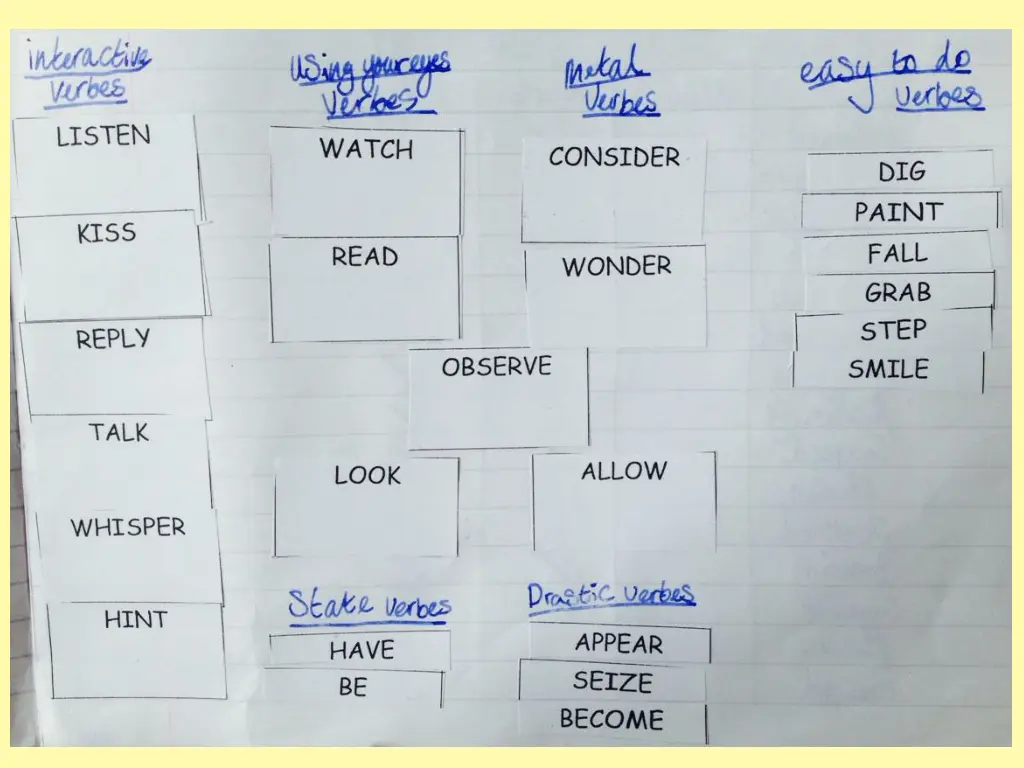 interactive
verbes
LISTEN
KISS
REPLY
TALK
WHISPER
HINT
Using your eyes
verbes
WATCH
READ
OBSERVE
LOOK
State verbes
HAVE
BE
Metal
verbes
CONSIDER
WONDER
ALLOW
Drastic verbes
APPEAR
SEIZE
BECOME
easy to do
verbes
DIG
PAINT
FALL
GRAB
STEP
SMILE